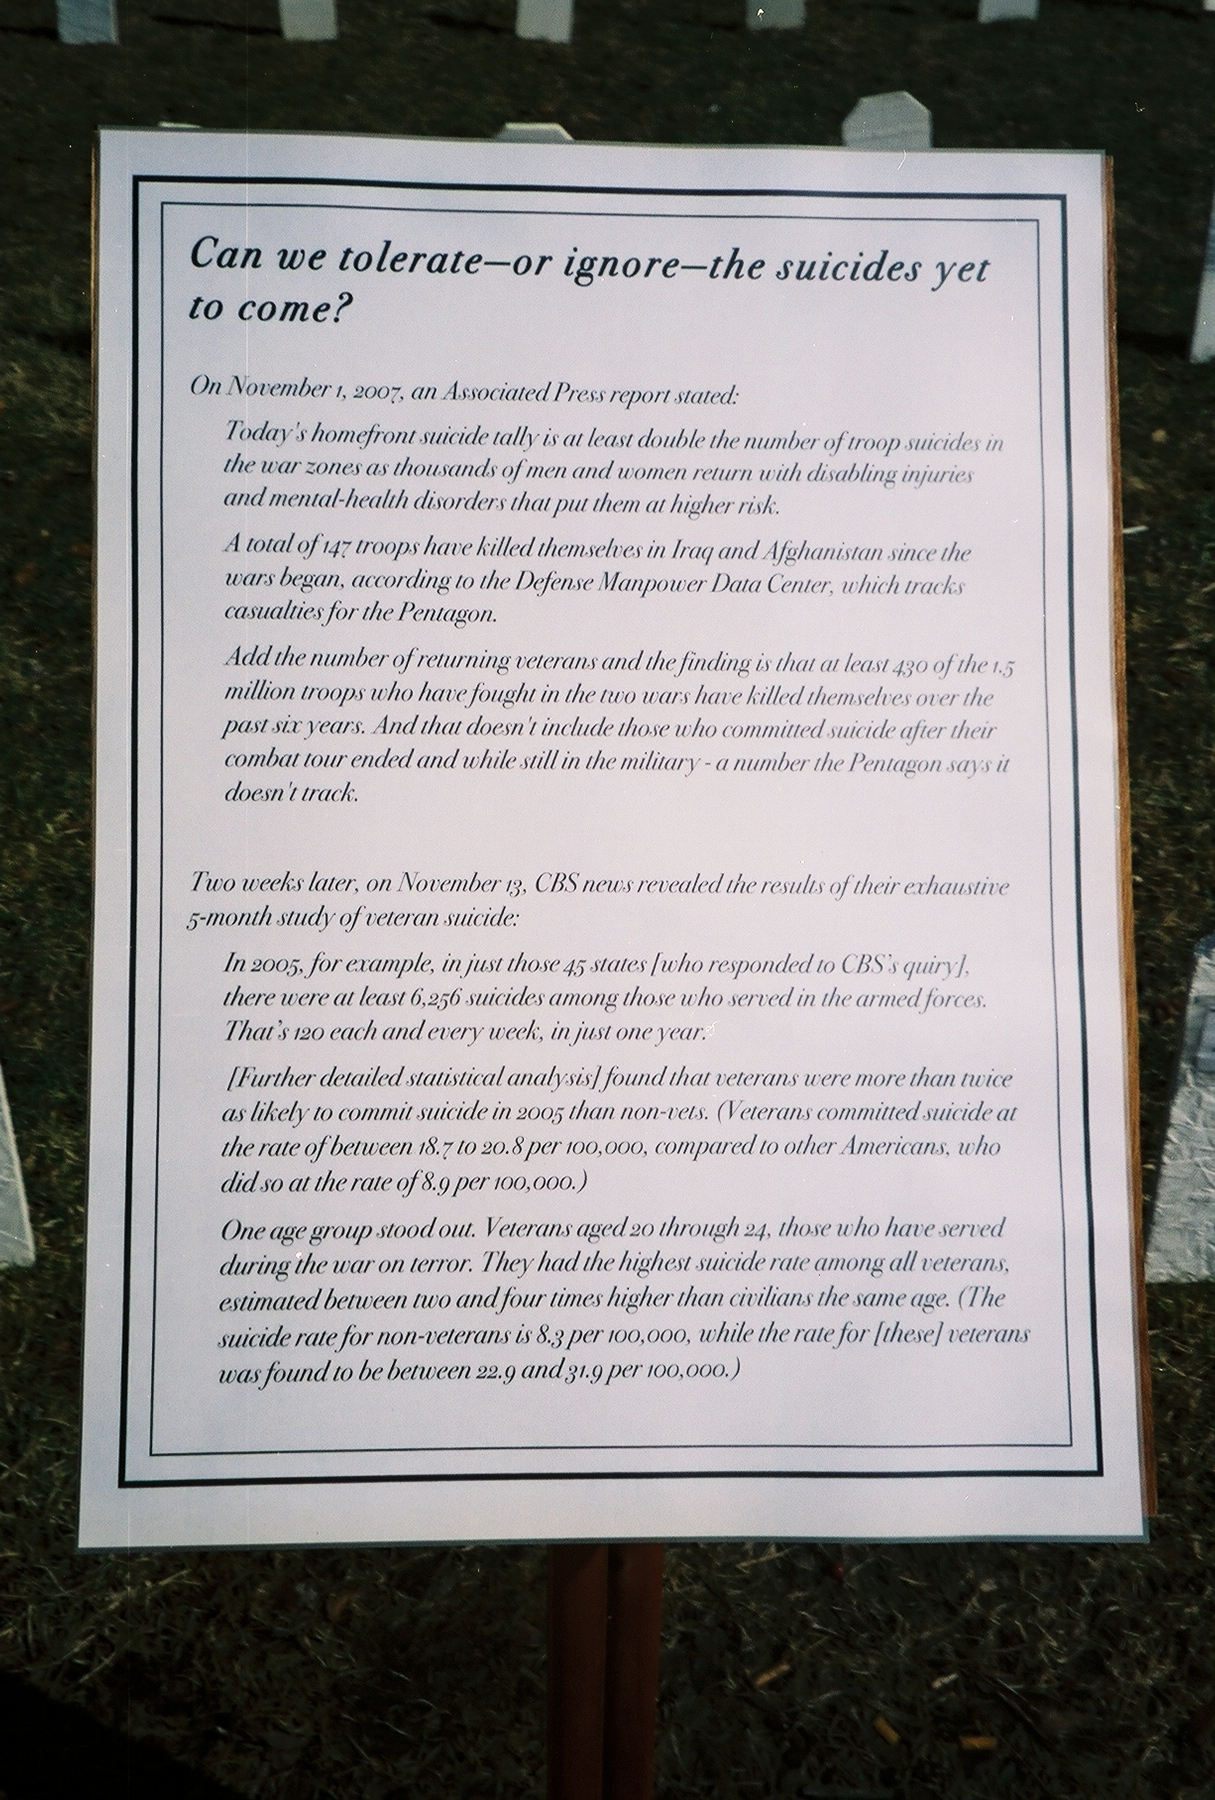 Can we tolerate—or ignore—the suicides yet
to come?
On November 1, 2007, an Associated Press report stated:
Today's homefront suicide tally is at least double the number of troop suicides in
the war zones as thousands of men and women return with disabling injuries
and mental-health disorders that put them at higher risk.
A total of 147 troops have killed themselves in Iraq and Afghanistan since the
wars began, according to the Defense Manpower Data Center, which tracks
casualties for the Pentagon.
Add the number of returning veterans and the finding is that at least 430 of the 1.5
million troops who have fought in the two wars have killed themselves over the
past six years. And that doesn't include those who committed suicide after their
combat tour ended and while still in the military - a number the Pentagon says it
doesn't track.
Two weeks later, on November 13, CBS news revealed the results of their exhaustive
5-month study of veteran suicide:
In 2005, for example, in just those 45 states [who responded to CBS's quiry],
there were at least 6,256 suicides among those who served in the armed forces.
That's 120 each and every week, in just one year.
[Further detailed statistical analysis] found that veterans were more than twice
as likely to commit suicide in 2005 than non-vets. (Veterans committed suicide at
the rate of between 18.7 to 20.8 per 100,000, compared to other Americans, who
did so at the rate of 8.9 per 100,000.)
One age group stood out. Veterans aged 20 through 24, those who have served
during the war on terror. They had the highest suicide rate among all veterans,
estimated between two and four times higher than civilians the same age. (The
suicide rate for non-veterans is 8.3 per 100,000, while the rate for [these] veterans
was found to be between 22.9 and 31.9 per 100,000.)